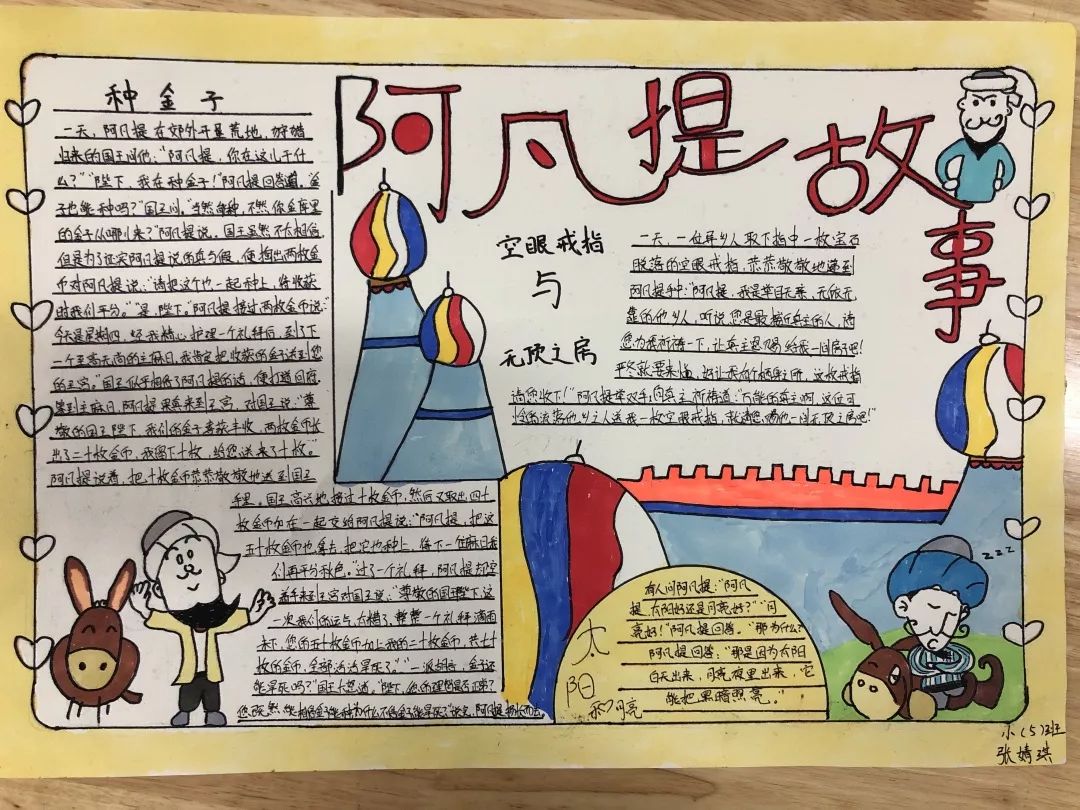 阿凡提故事
种金子
一天,阿凡提在郊外开垦荒地,狩猎
归来的国王问他:“阿凡提,你在这儿干什
么?”“陛下,我在种金子!”阿凡提回答道。“金
子也能种吗?”国王问。“当然能种,不然你金库里
的金子从哪儿来?”阿凡提说。国王虽然不太相信,
但是为了证实阿凡提说的真与假,便掏出两枚金
币对阿凡提说:“请把这个也一起种上,待收获
时我们平分。”“是,陛下。”阿凡提接过两枚金币说:“
今天是星期四,经我精心护理一个礼拜后,到了下
一个至高无尚的主麻日,我肯定把收获的金子送到您
的王宫。”国王似乎相信了阿凡提的话,便打道回府。
等到主麻日,阿凡提果真来到王宫,对国王说:“尊
敬的国王陛下,我们的金子喜获丰收,两枚金币长
出了二十枚金币,我留下十枚,给您送来了十枚。”
阿凡提说着,把十枚金币恭恭敬敬地送到国王
手里。国王高兴地接过十枚金币,然后又取出四十
枚金币加在一起交给阿凡提说:“阿凡提,把这
五十枚金币也拿去,把它也种上,待下一个主麻日我
们再平分秋色。”过了一个礼拜,阿凡提却空
着手来到王宫对国王说:“尊敬的国王陛下,这
一次我们的运气太糟了,整整一个礼拜滴雨
未下,您的五十枚金币加上我的二十枚金币,共七十
枚的金币,全部活活旱死了。”“一派胡言,金子还
能旱死吗?”国王大怒道。“陛下,您的理智是否正常?
您既然能相信金子能种为什么不信金子能旱死?”说完,阿凡提扬长而去。
空眼戒指
与
无顶之房
一天,一位异乡人取下指中一枚宝石
脱落的空眼戒指,恭恭敬敬地递到
阿凡提手中:“阿凡提,我是举目无亲,无依无
靠的他乡人,听说您是最接近真主的人,请
您为我祈祷一下,让真主恩赐给我一间房吧!
严冬就要来临,好让我有个栖身之所,这枚戒指
请您收下!”阿凡提举双手,向真主祈祷道:“万能的真主啊,这位可
怜的流落他乡之人送我一枚空眼戒指,就请您赐他一间无顶之房吧!”
太
阳
和月亮
有人问阿凡提:“阿凡
提,太阳好还是月亮好?”“月
亮好!”阿凡提回答。“那为什么?”
阿凡提回答:“那是因为太阳
白天出来,月亮夜里出来,它
能把黑暗照亮。”
zzz
小(5)班
张婧琪